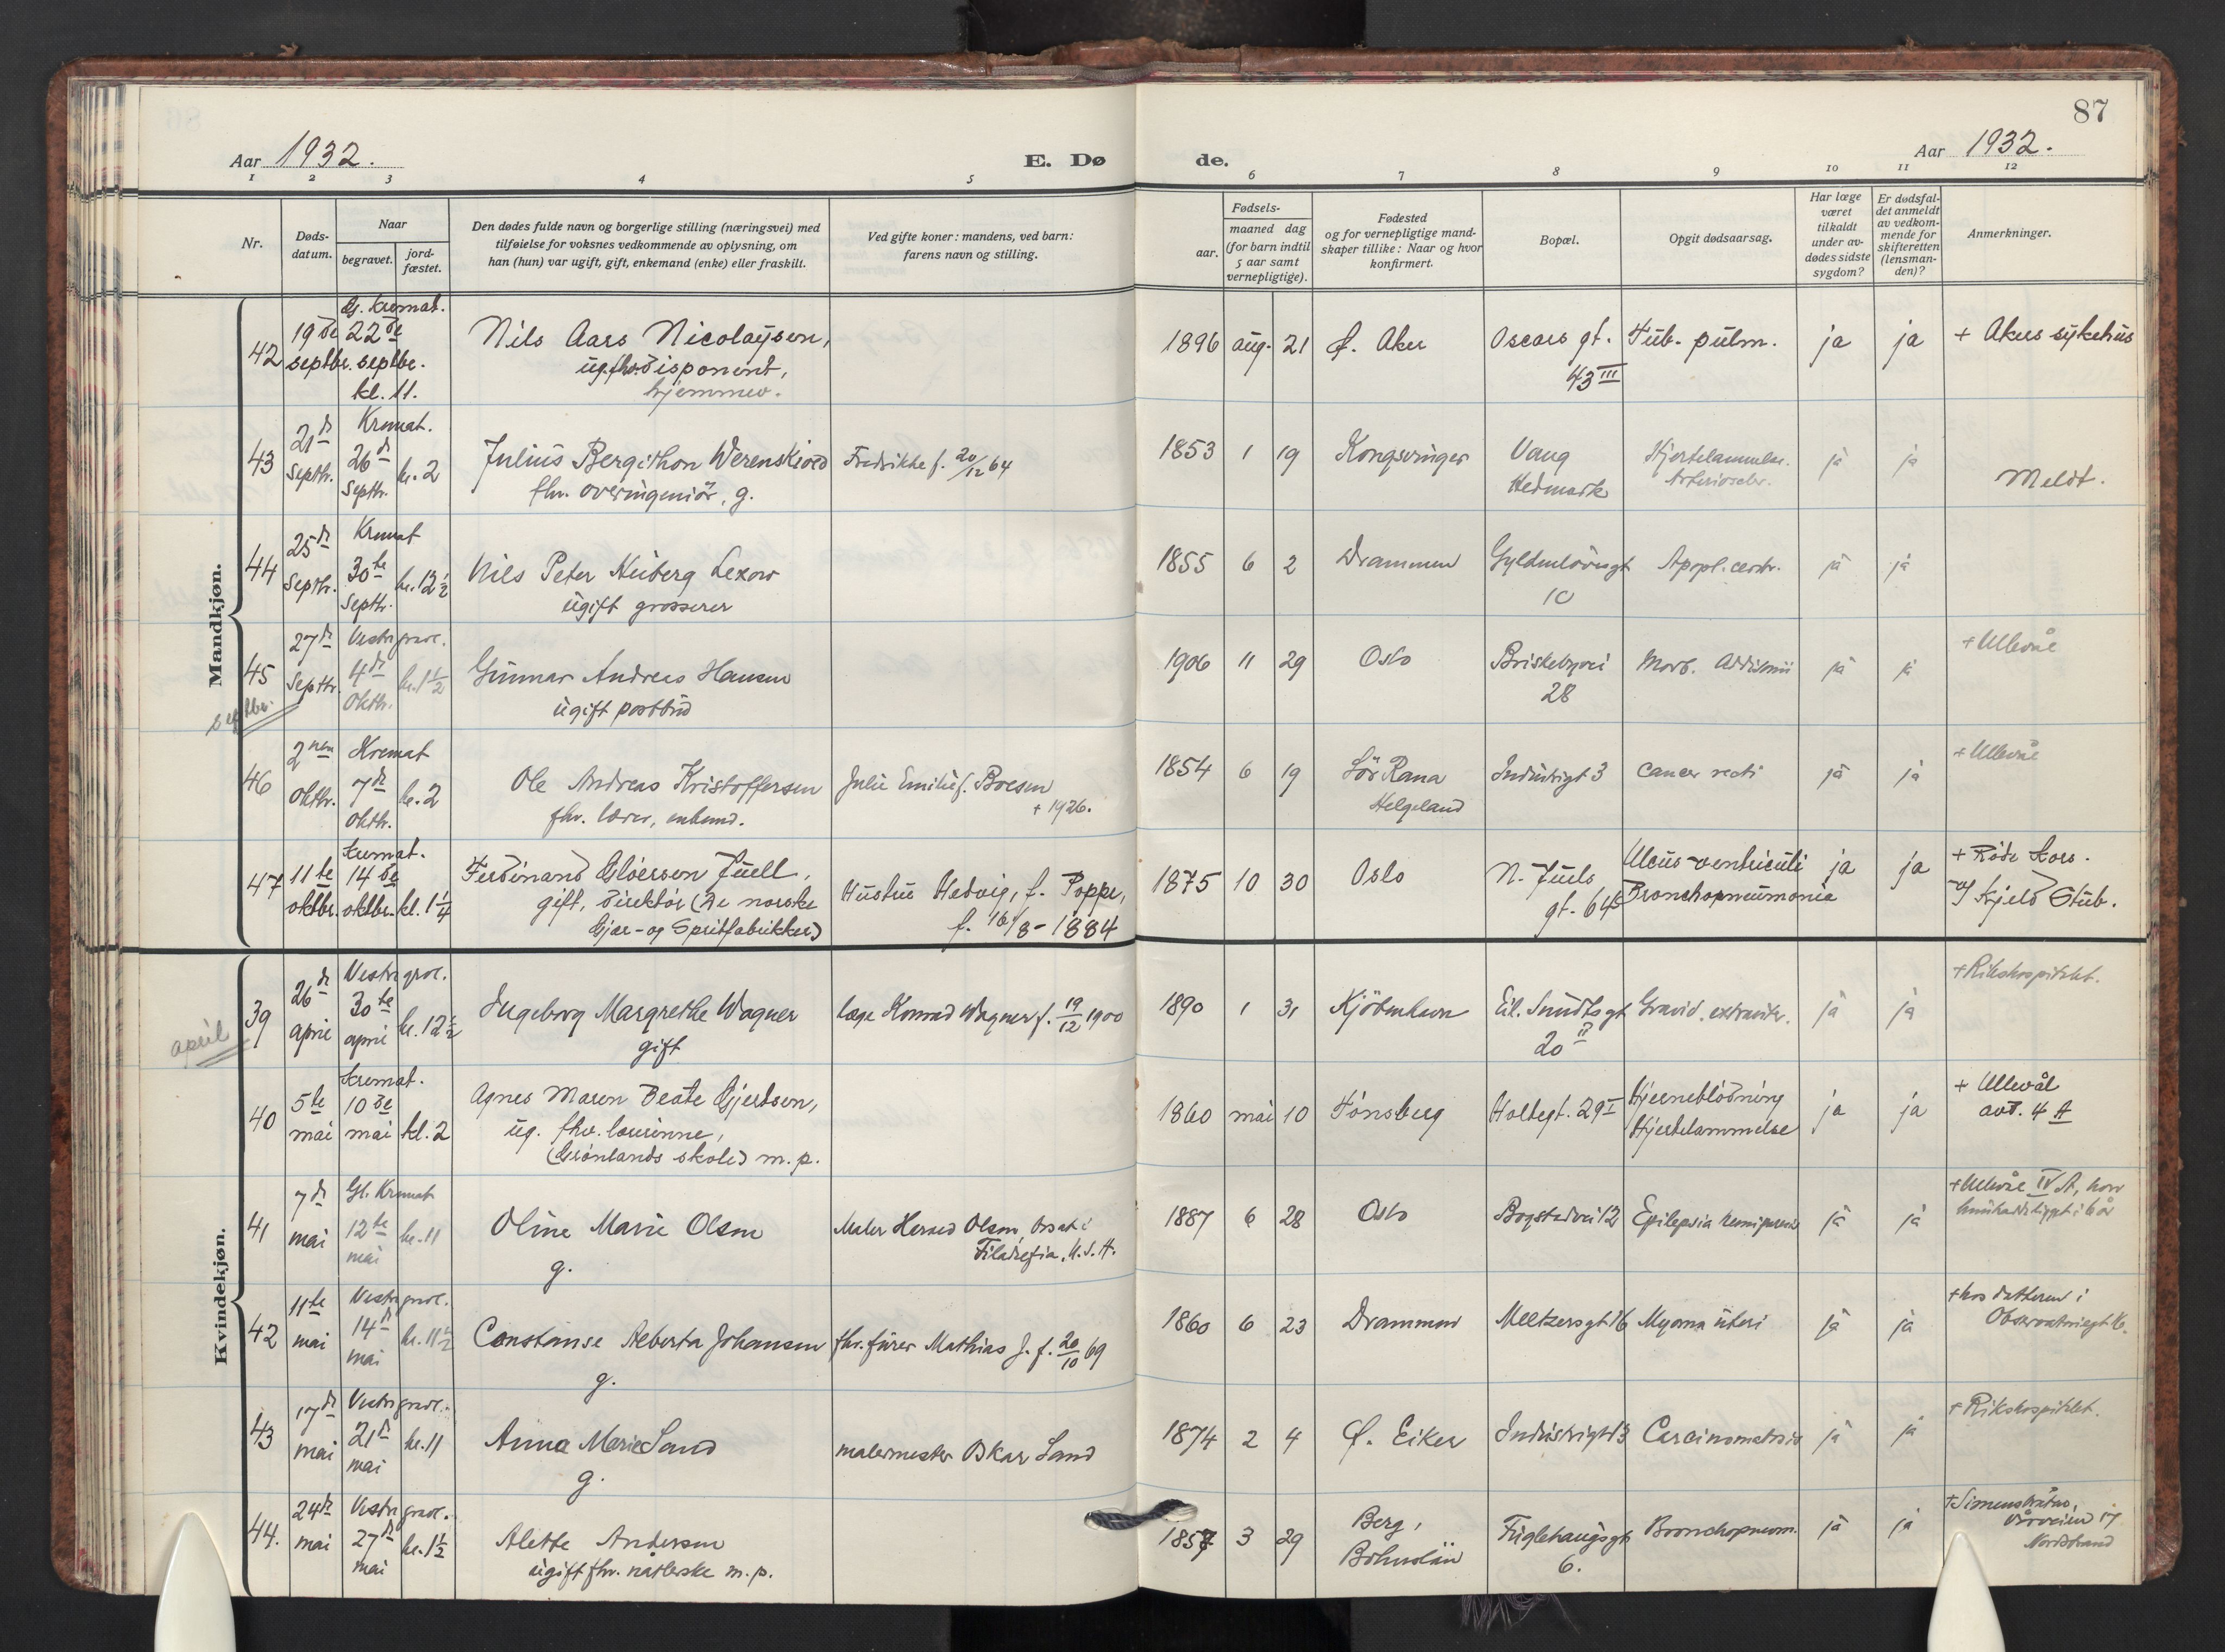 87
Aar 1932.
E. Døde.
Aar 1932.
1 2 3 4 5 6 7 8 9 10 11 12
Nr.
Døds-
datum.
Naar
begravet.
jord-
fæstet.
Den dødes fulde navn og borgerlige stilling (næringsvei) med
tilføielse for voksnes vedkommende av oplysning, om
han (hun) var ugift, gift, enkemand (enke) eller fraskilt.
Ved gifte koner: mandens, ved barn:
farens navn og stilling.
Fødsels-
aar.
maaned dag
(for barn indtil
5 aar samt
vernepligtige).
Fødested
og for vernepligtige mand-
skaper tillike: Naar og hvor
konfirmert.
Bopæl.
Opgit dødsaarsag.
Har læge
været
tilkaldt
under av-
dødes sidste
sygdom?
Er dødsfal-
det anmeldt
av vedkom-
mende for
skifteretten
(lensman-
den)?
Anmerkninger.
Mandkjøn.
42
19de
septbr.
kremat.
22de
septbr.
kl. 11.
Nils Aars Nicolaysen,
ug. fhv. disponent,
hjemmev.
1896 aug. 21
Ø. Aker
Oscars gt.
43 III
Tub. pulm.
ja
ja
+ Akers sykehus
43
21de
Septbr.
Kremat.
26de
Septbr.
kl. 2
Julius Bergithon Werenskiold
fhv. overingeniör, g.
Fredrikke f. 20/12 64
1853 1 19
Kongsvinger
Vang
Hedmark
Hjertelammelse.
Arterioscler.
ja
ja
Meldt.
44
25de
Septbr.
Kremat
30te
Septbr.
kl. 12½
Nils Peter Heiberg Lexow
ugift grosserer
1855 6 2
Drammen
Gyldenlövesgt
10
Apopl. cerebr.
ja
ja
45
27de
Septbr.
Vestre gravl.
4de
Oktbr.
kl. 1½
Gunnar Andreas Hansen
ugift postbud
1906 11 29
Oslo
Briskebyvei
28
Morb. Addisonii
ja
ja
+ Ullevål
septbr.
46
2nen
oktbr.
Kremat
7de
oktbr.
kl. 2
Ole Andreas Kristoffersen
fhv. lærer, enkemd.
Julie Emilie f. Boesen
+ 1926.
1854 6 19
Sör Rana
Helgeland
Industrigt 3
Cancer recti
ja
ja
+ Ullevål
47
11te
oktbr.
kremat.
14de
oktbr.
kl. 1¼
Ferdinand Gløersen Juell,
gift, direktör (De norske
Gjær- og Spritfabrikker)
Hustru Hedvig, f. Poppe,
f. 16/8-1884
1875 10 30
Oslo
N. Juels
gt. 64
Ulcus ventriculi
Bronchopneumonia
ja
ja
+ Röde Kors.
v/ Kjeld Stub.
Kvindekjøn.
39
26de
april
Vestre grav.
30te
april
kl. 12½
Ingeborg Margrethe Wagner
gift
læge Konrad Wagner f. 19/12 1900
1890 1 31
Kjöbenhavn
Eil. Sundtsgt
20 II
Gravid. extrauter.
ja
ja
+ Rikshospitalet.
april
40
5te
mai
kremat.
10de
mai
kl. 2
Agnes Maren Beate Gjertsen,
ug. fhv. lærerinne,
(Grønlands skole) m. p.
1860 mai 10
Tønsberg
Holtegt. 29 I
Hjerneblödning
Hjertelammelse
ja
ja
+ Ullevål
avd. 4 A
41
7de
mai
Gl. Kremat
12te
mai
kl. 11
Oline Marie Olsen
g.
Maler Herard Olsen, bosat i
Filadelfia, U.S.A.
1887 6 28
Oslo
Bogstadvei 12
Epilepsia
ja
ja
+ Ullevål IV A, hvor
hun hadde ligget i 6 år
42
11te
mai
Vestre gravl.
14de
mai
kl. 11½
Constanse Alberta Johansen
g.
fhv. furer Mathias J. f. 20/10 69
1860 6 23
Drammen
Meltzersgt 16
Myoma uteri
ja
ja
+ hos datteren i
Observatoriegt 16.
43
17de
mai
Vestre gravl.
21de
mai
kl. 11
Anna Marie Sand
g.
malermester Oskar Sand
1874 2 4
Ø. Eiker
Industrigt 13
Carcinomatosis
ja
ja
+ Rikshospitalet.
44.
24de
mai
Vestre gravl.
27de
mai
kl. 1½
Alette Andersen
ugift fhv. nåtlerske m. p.
1857 3 29
Berg,
Bohuslän
Fuglehaugsgt
6.
Bronchopneum.
ja
ja
Vårveien 17
Nordstrand